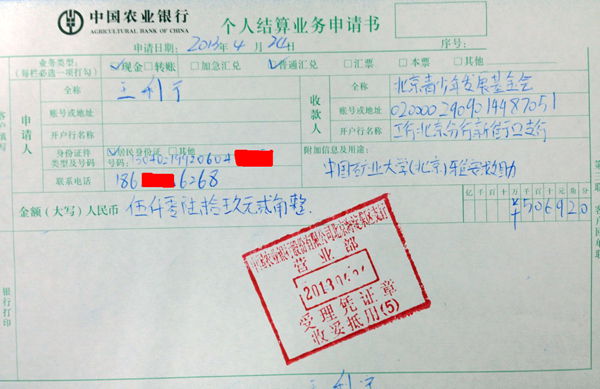 中国农业银行
AGRICULTURAL BANK OF CHINA
个人结算业务申请书
申请日期：2013年4月24日
序号：
业务类型：
(每栏必选一项打勾)
现金 转账 加急汇兑 普通汇兑 汇票 本票 其他
客户填写
申请人
全称
账号或地址
开户行名称
身份证件
类型及号码
居民身份证 其他
号码：
联系电话
186 6268
收款人
全称
北京青少年发展基金会
账号或地址
0200002909014487051
开户行名称
工行北京分行新街口支行
附加信息及用途：
中国矿业大学(北京)
金额（大写）人民币
伍仟零陆拾玖元贰角整
亿千百十万千百十元角分
¥506920
银行打印
营业部
2013
受理凭证章
收妥抵用(5)